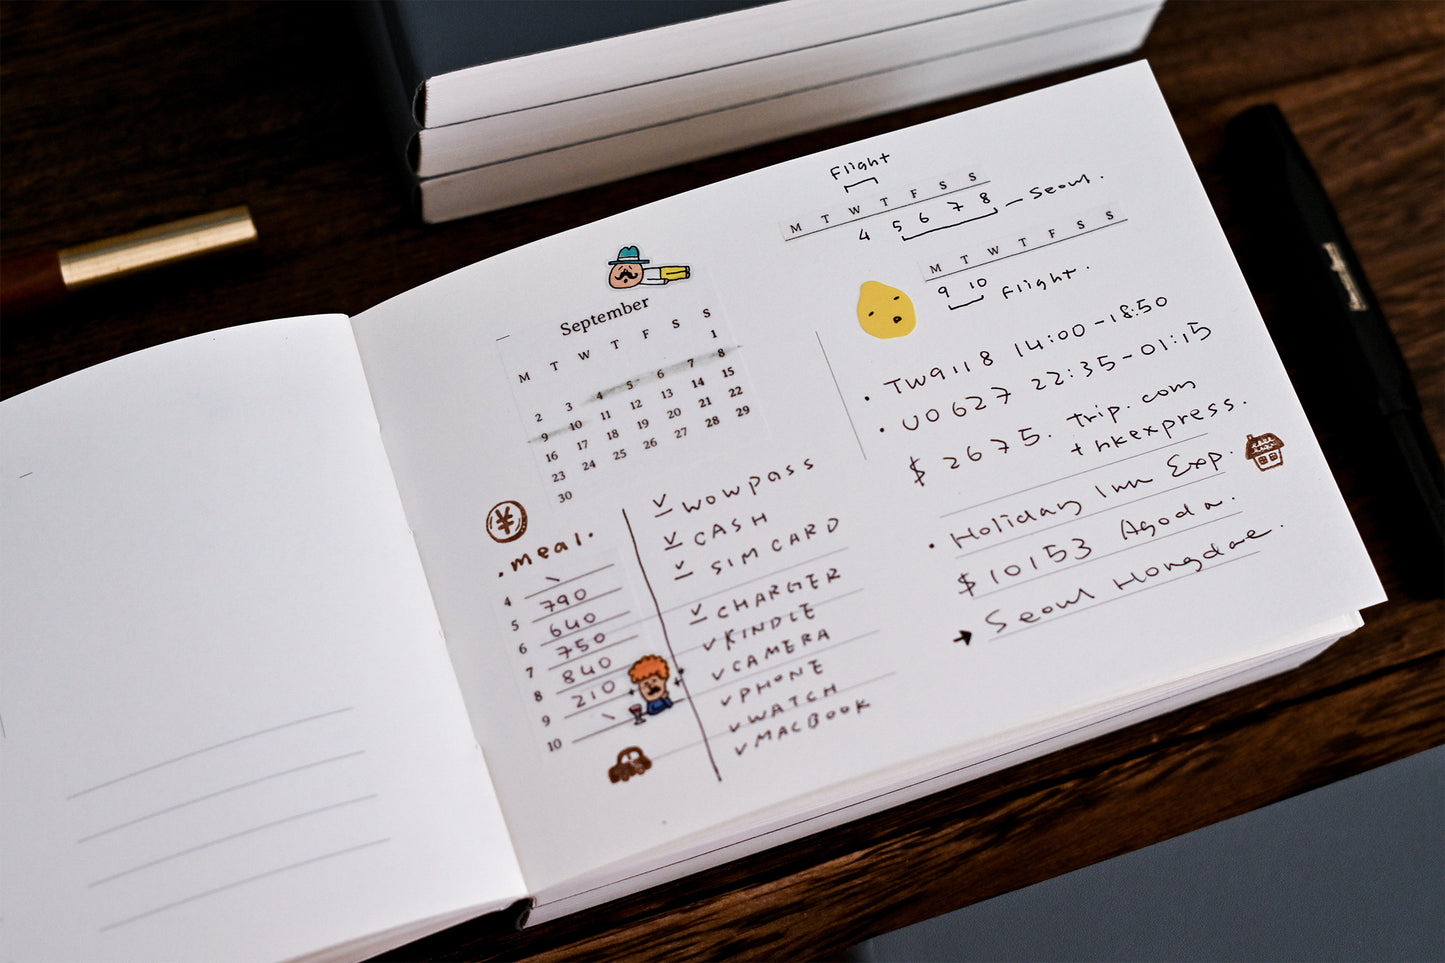 September
M T W T F S S
1
2 3 4 5 6 7 8
9 10 11 12 13 14 15
16 17 18 19 20 21 22
23 24 25 26 27 28 29
30
¥
• meal •
4 \
5 790
6 640
7 750
8 840
9 210
10 \
✓ wowpass
✓ CASH
✓ SIM CARD
✓ CHARGER
✓ KINDLE
✓ CAMERA
✓ PHONE
✓ WATCH
✓ MACBOOK
Flight
M T W T F S S
4 5 6 7 8 — Seoul.
M T W T F S S
9 10 Flight.
• TW9118 14:00-18:50
• UO627 22:35-01:15
$2675. trip.com
+ hkexpress.
• Holiday Inn Exp.
$10153 Agoda.
→ Seoul Hongdae.